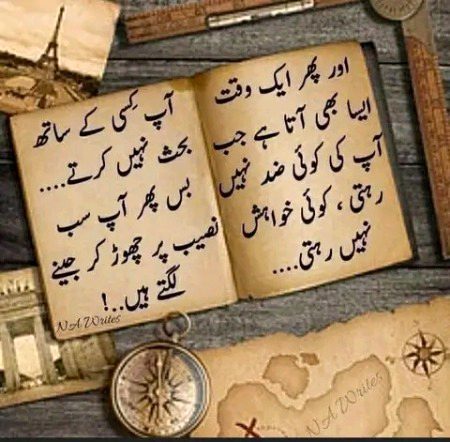 اور پھر ایک وقت
ایسا بھی آتا ہے جب
آپ کی کوئی ضد نہیں
رہتی ، کوئی خواہش
نہیں رہتی....
آپ کسی کے ساتھ
بحث نہیں کرتے....
بس پھر آپ سب
نصیب پر چھوڑ کر جینے
لگتے ہیں..!
NA Writes
NA Writes